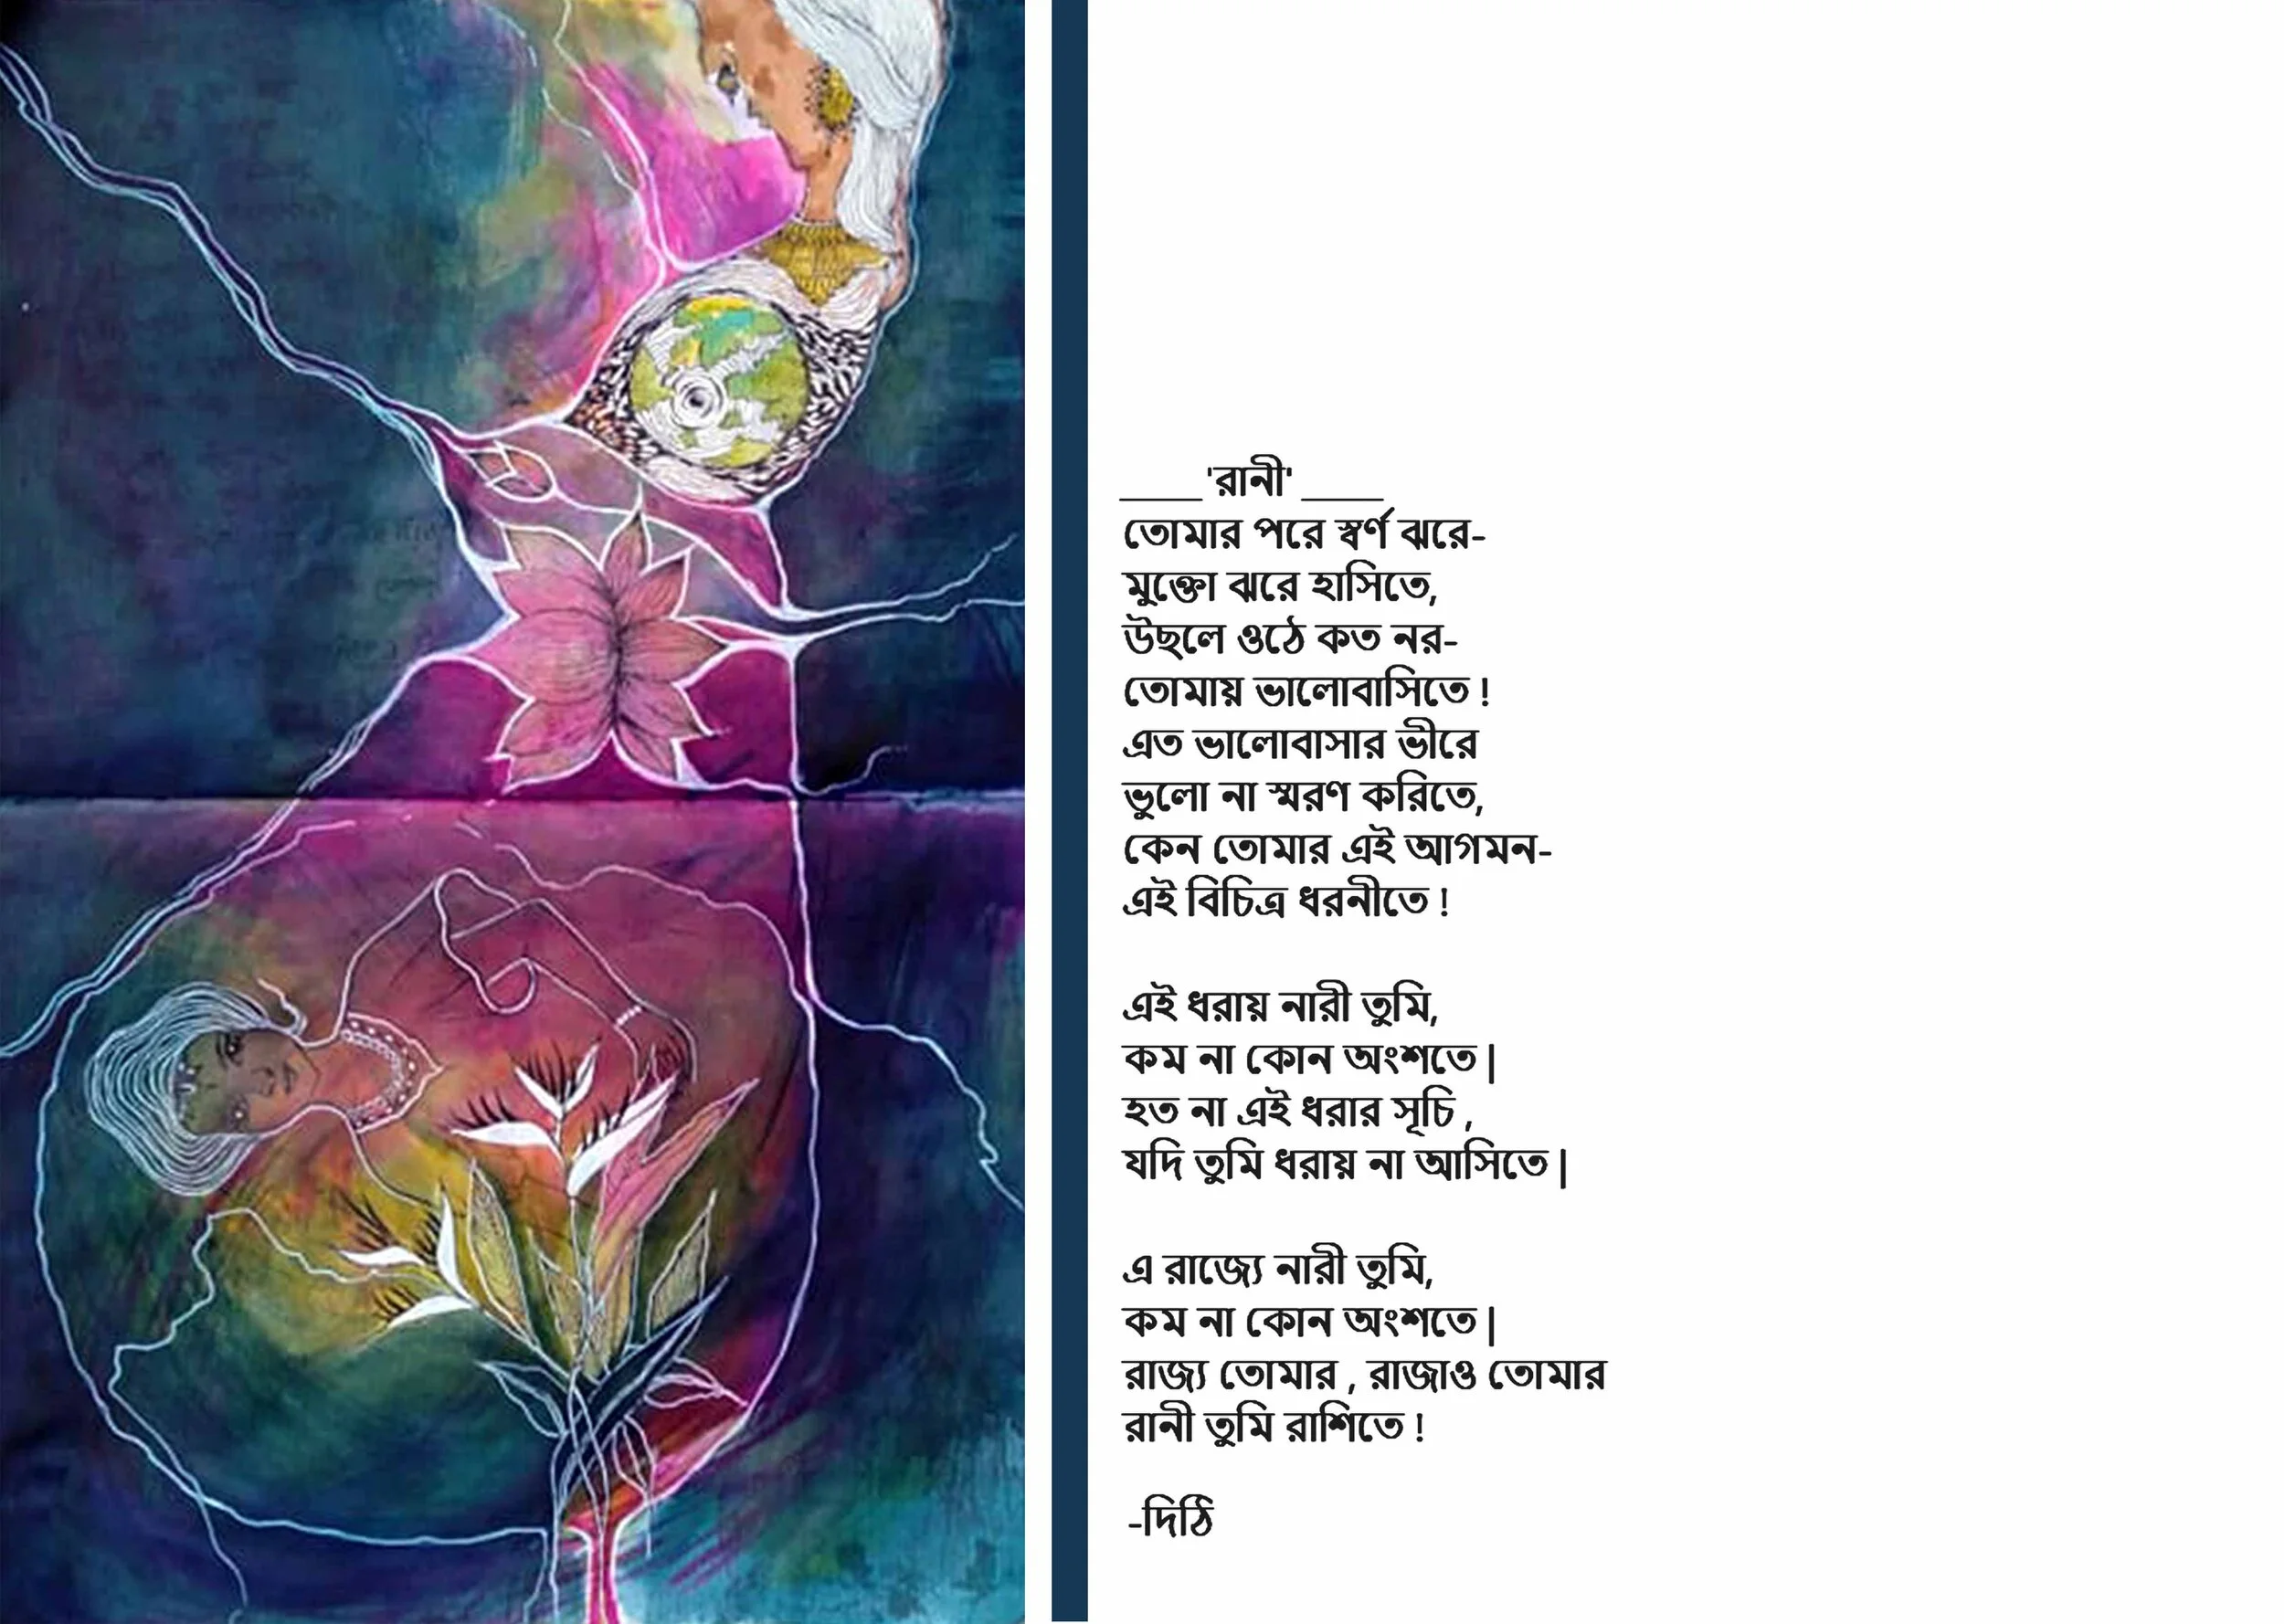 ____'রানী'____
তোমার পরে স্বর্ণ ঝরে-
মুক্তো ঝরে হাসিতে,
উছলে ওঠে কত নর-
তোমায় ভালোবাসিতে !
এত ভালোবাসার ভীরে
ভুলো না স্মরণ করিতে,
কেন তোমার এই আগমন-
এই বিচিত্র ধরনীতে !
এই ধরায় নারী তুমি,
কম না কোন অংশতে |
হত না এই ধরার সূচি ,
যদি তুমি ধরায় না আসিতে |
এ রাজ্যে নারী তুমি,
কম না কোন অংশতে |
রাজ্য তোমার , রাজাও তোমার
রানী তুমি রাশিতে !
-দিঠি